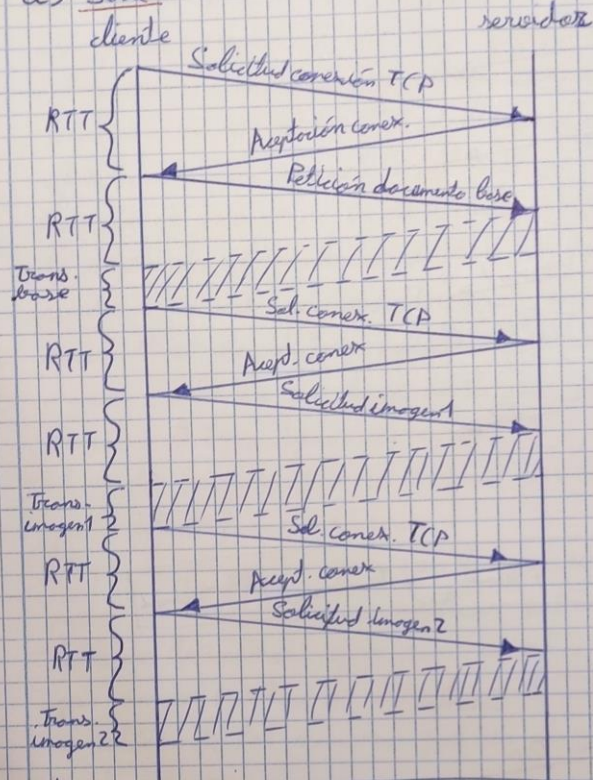 cliente
servidor
Solicitud conexión TCP
RTT
Aceptación conex.
Petición documento base
RTT
Trans.
base
Sol. conex. TCP
RTT
Acept. conex
Solicitud imagen1
RTT
Trans.
imagen1
Sol. conex. TCP
RTT
Acept. conex
Solicitud imagen2
RTT
Trans.
imagen2